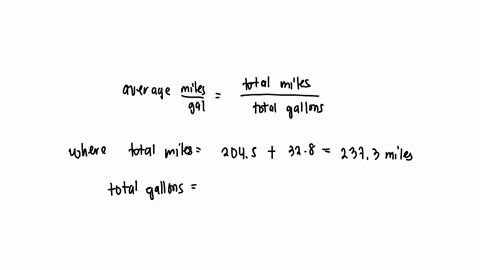 average miles/gal = total miles/total gallons
where total miles = 204.5 + 32.8 = 237.3 miles
total gallons =